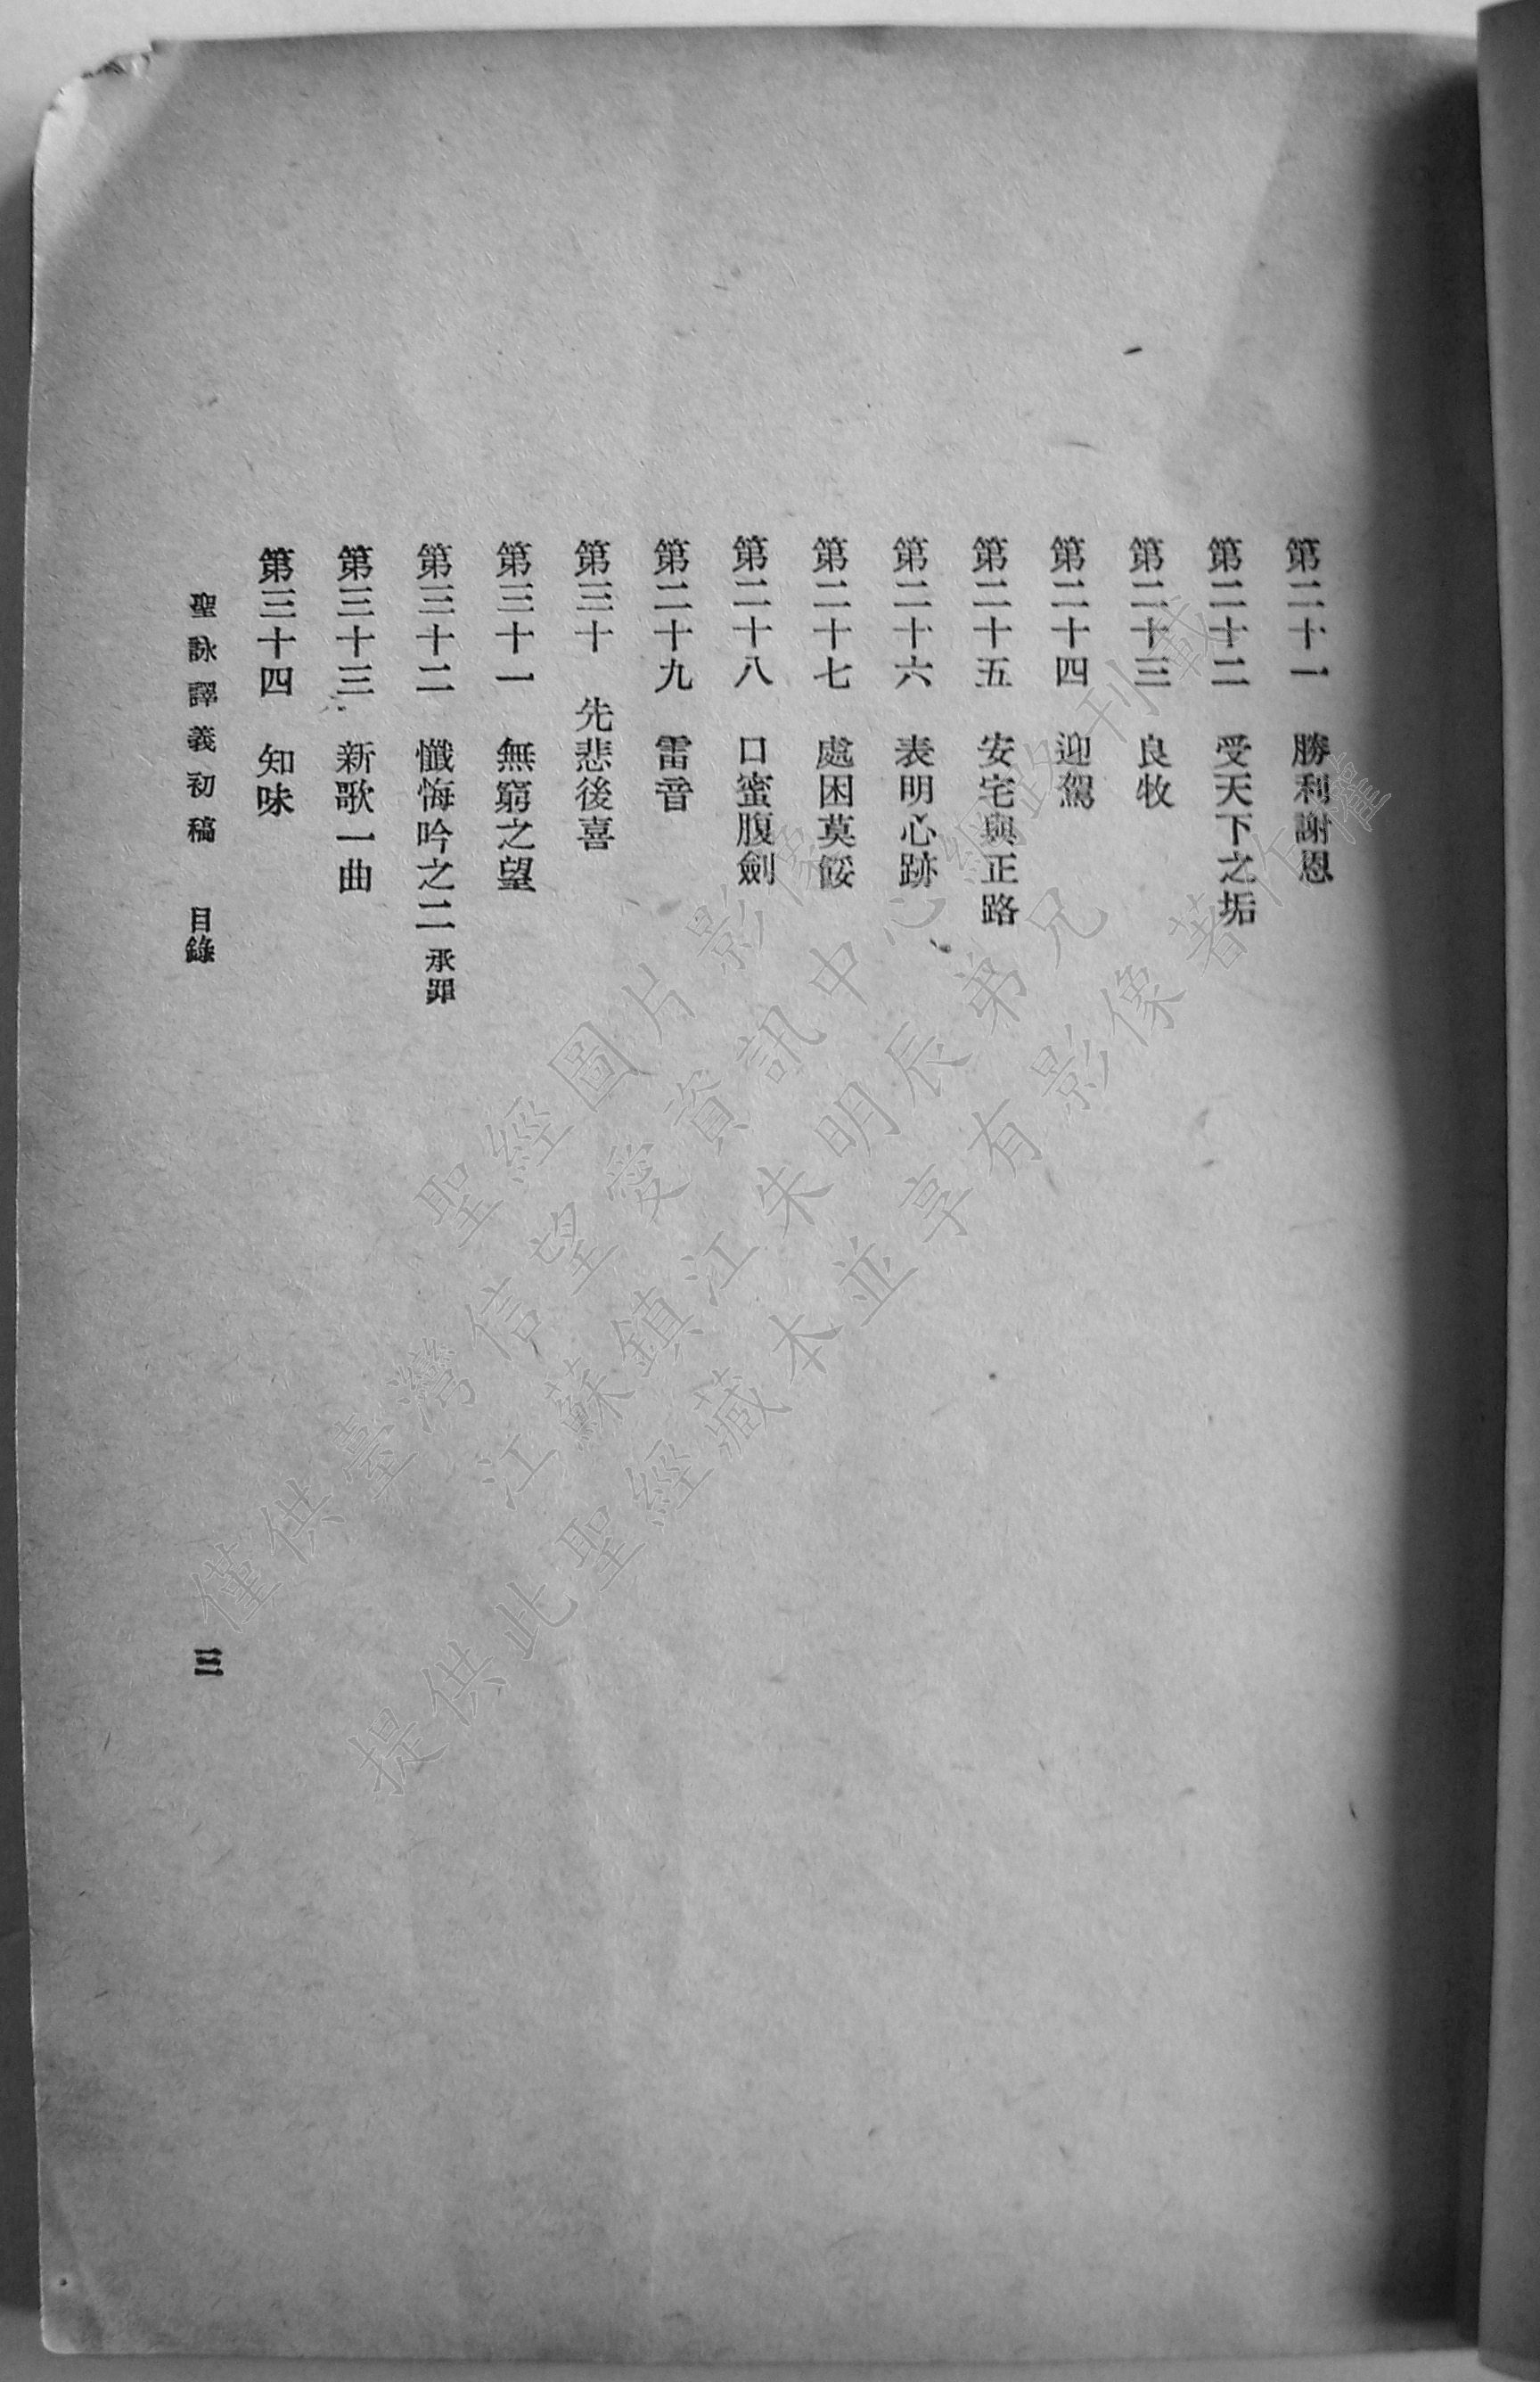 第二十一　勝利謝恩
第二十二　受天下之垢
第二十三　良牧
第二十四　迎駕
第二十五　安宅與正路
第二十六　表明心跡
第二十七　處困莫餒
第二十八　口蜜腹劍
第二十九　雷音
第三十　先悲後喜
第三十一　無窮之望
第三十二　懺悔吟之二 承罪
第三十三　新歌一曲
第三十四　知味
聖詠譯義初稿　目錄　三
聖經圖片影像
僅供臺灣信望愛資訊中心網路刊載
江蘇鎮江朱明辰弟兄
提供此聖經藏本並享有影像著作權